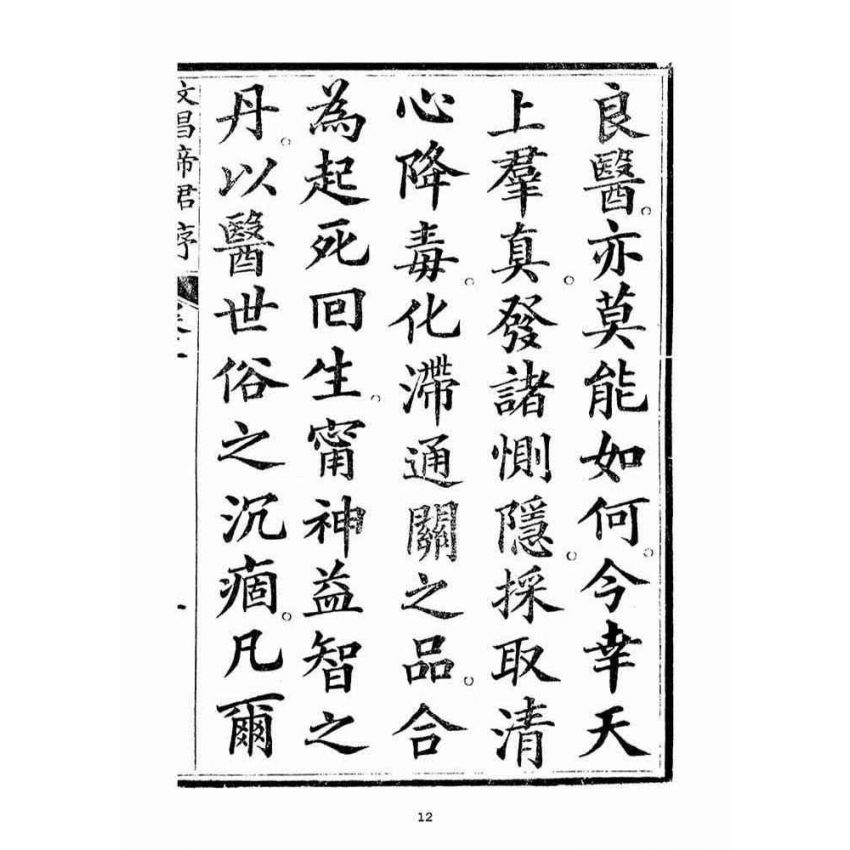 良醫。亦莫能如何。今幸天
上羣真。發諸惻隱。採取清
心降毒。化滯通關之品。合
為起死回生。甯神益智之
丹。以醫世俗之沉痼。凡爾
文昌帝君序
12